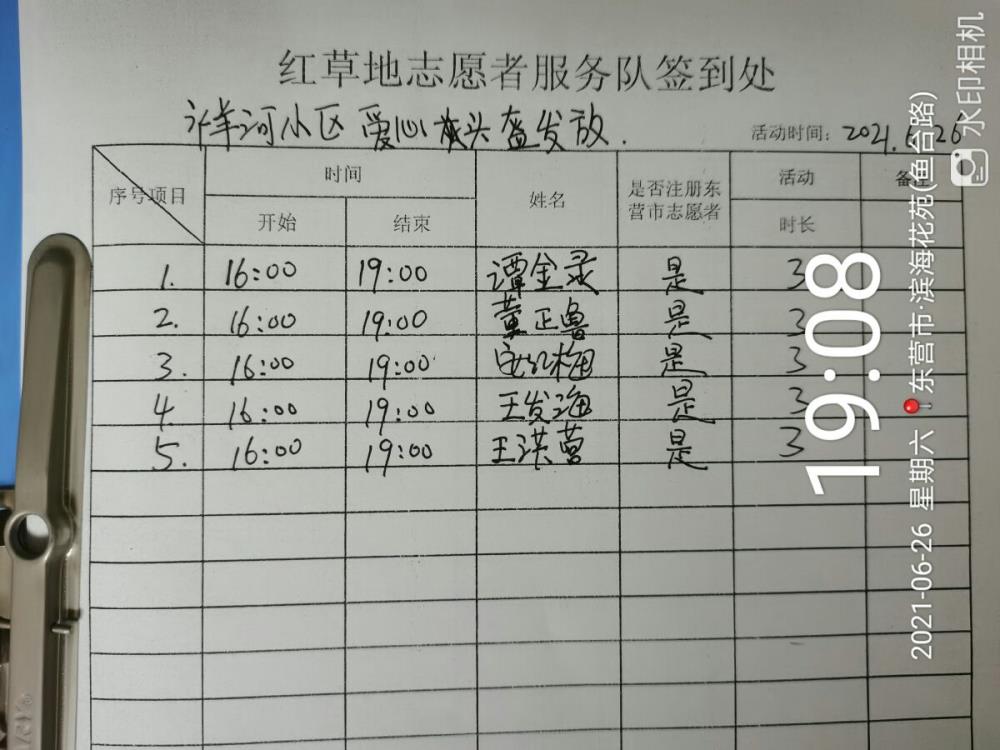 红草地志愿者服务队签到处
洋河小区 爱心头盔发放.
活动时间: 2021.6.26
序号 项目 时间 姓名 是否注册东营市志愿者 活动时长 备注
开始 结束
1. 16:00 19:00 谭金录 是 3
2. 16:00 19:00 董正鲁 是 3
3. 16:00 19:00 安红梅 是 3
4. 16:00 19:00 王发海 是 3
5. 16:00 19:00 王洪营 是 3
19:08
2021-06-26 星期六 东营市·滨海花苑(鱼台路)
水印相机